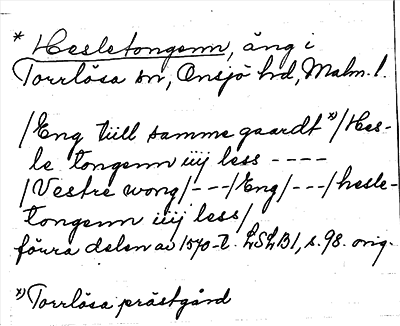 * Hesletongenn, äng i
Torrlösa sn, Onsjö hd, Malm. l.
/Eng till samme gaardt x)/Hes-
le tongenn iiij less ----
/Vestre wong/---/Eng/---/hesle-
tongenn iiij less/
förra delen av 1570-t. LSLB1, s. 98. orig.
x) Torrlösa prästgård